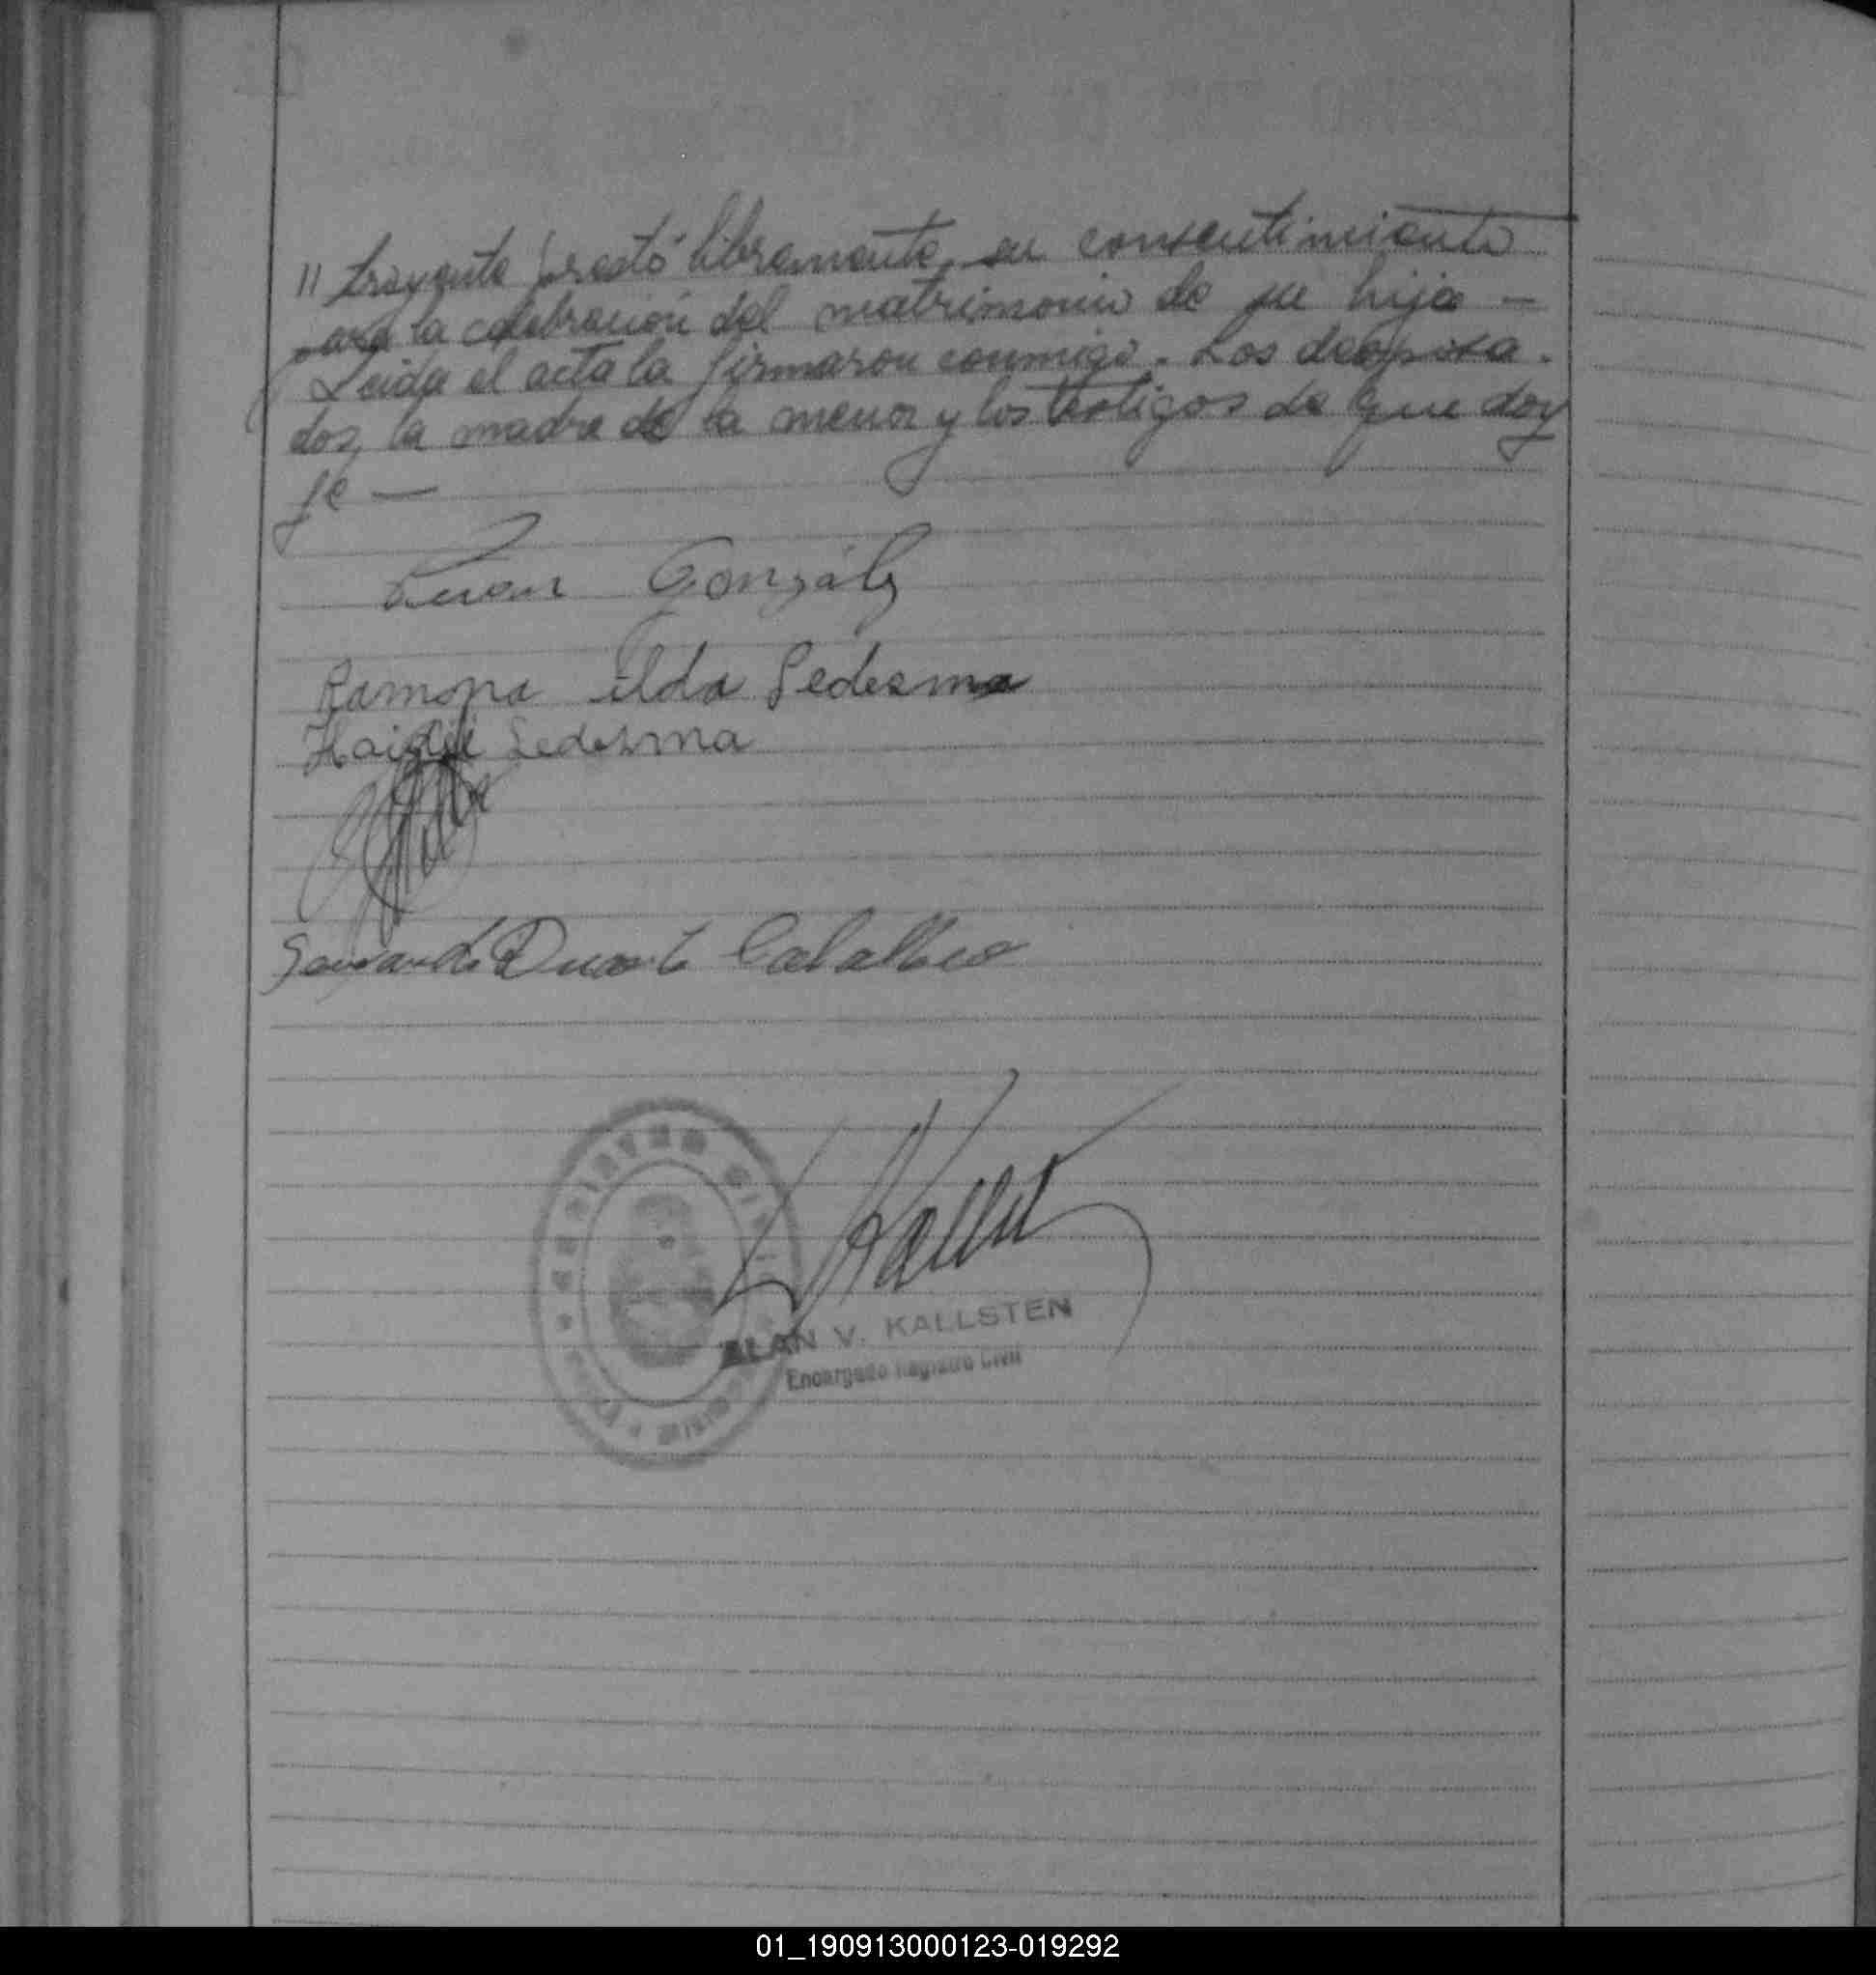 11 trayente prestó libremente su consentimiento
para la celebración del matrimonio de su hija —
Leida el acta la firmaron conmigo. Los desposa-
dos, la madre de la menor y los testigos de que doy
fé —
Juan González
Ramona ilda Ledesma
Haidé Ledesma
Duarte Caballero
Kallsten
REGISTRO CIVIL
ALAN V. KALLSTEN
Encargado Registro Civil
01_190913000123-019292